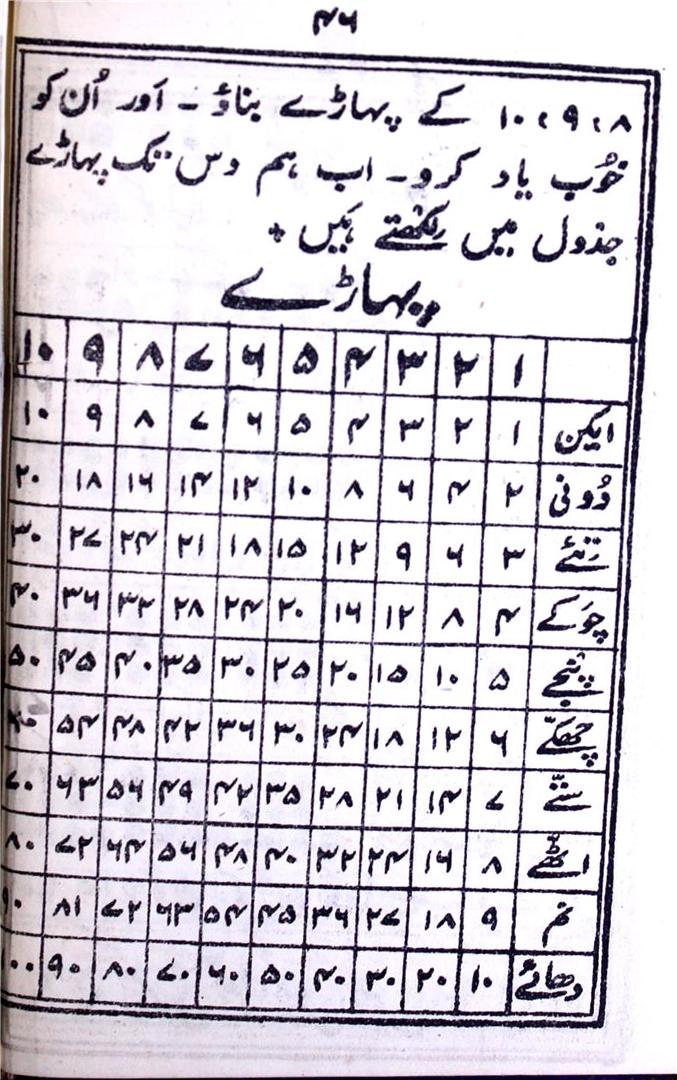 ۴۶
۸، ۹، ۱۰ کے پہاڑے بناؤ ۔ اَور اُن کو
خُوب یاد کرو ۔ اب ہم دس تک پہاڑے
جدول میں رکھتے ہَیں +
پہاڑے
۱ ۲ ۳ ۴ ۵ ۶ ۷ ۸ ۹ ۱۰
ایکن ۱ ۲ ۳ ۴ ۵ ۶ ۷ ۸ ۹ ۱۰
دُونی ۲ ۴ ۶ ۸ ۱۰ ۱۲ ۱۴ ۱۶ ۱۸ ۲۰
تئے ۳ ۶ ۹ ۱۲ ۱۵ ۱۸ ۲۱ ۲۴ ۲۷ ۳۰
چَوکے ۴ ۸ ۱۲ ۱۶ ۲۰ ۲۴ ۲۸ ۳۲ ۳۶ ۴۰
پنجے ۵ ۱۰ ۱۵ ۲۰ ۲۵ ۳۰ ۳۵ ۴۰ ۴۵ ۵۰
چھکّے ۶ ۱۲ ۱۸ ۲۴ ۳۰ ۳۶ ۴۲ ۴۸ ۵۴ ۶۰
ستّے ۷ ۱۴ ۲۱ ۲۸ ۳۵ ۴۲ ۴۹ ۵۶ ۶۳ ۷۰
اٹھّے ۸ ۱۶ ۲۴ ۳۲ ۴۰ ۴۸ ۵۶ ۶۴ ۷۲ ۸۰
نم ۹ ۱۸ ۲۷ ۳۶ ۴۵ ۵۴ ۶۳ ۷۲ ۸۱ ۹۰
دھائے ۱۰ ۲۰ ۳۰ ۴۰ ۵۰ ۶۰ ۷۰ ۸۰ ۹۰ ۱۰۰